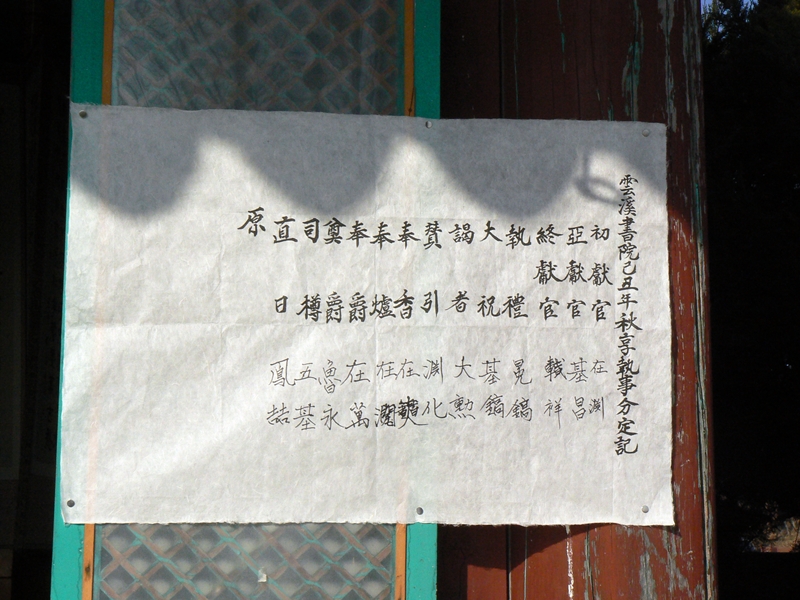 雲溪書院己丑年秋享執事分定記
初獻官 在渊
亞獻官 基昌
終獻官 戟祥
執禮 冕鎬
大祝 基鎬
謁者 大勲
賛引 渊化
奉香 在
奉爐 在瀾
奉爵 在萬
奠爵 魯永
司樽 五基
直日 鳳喆
原